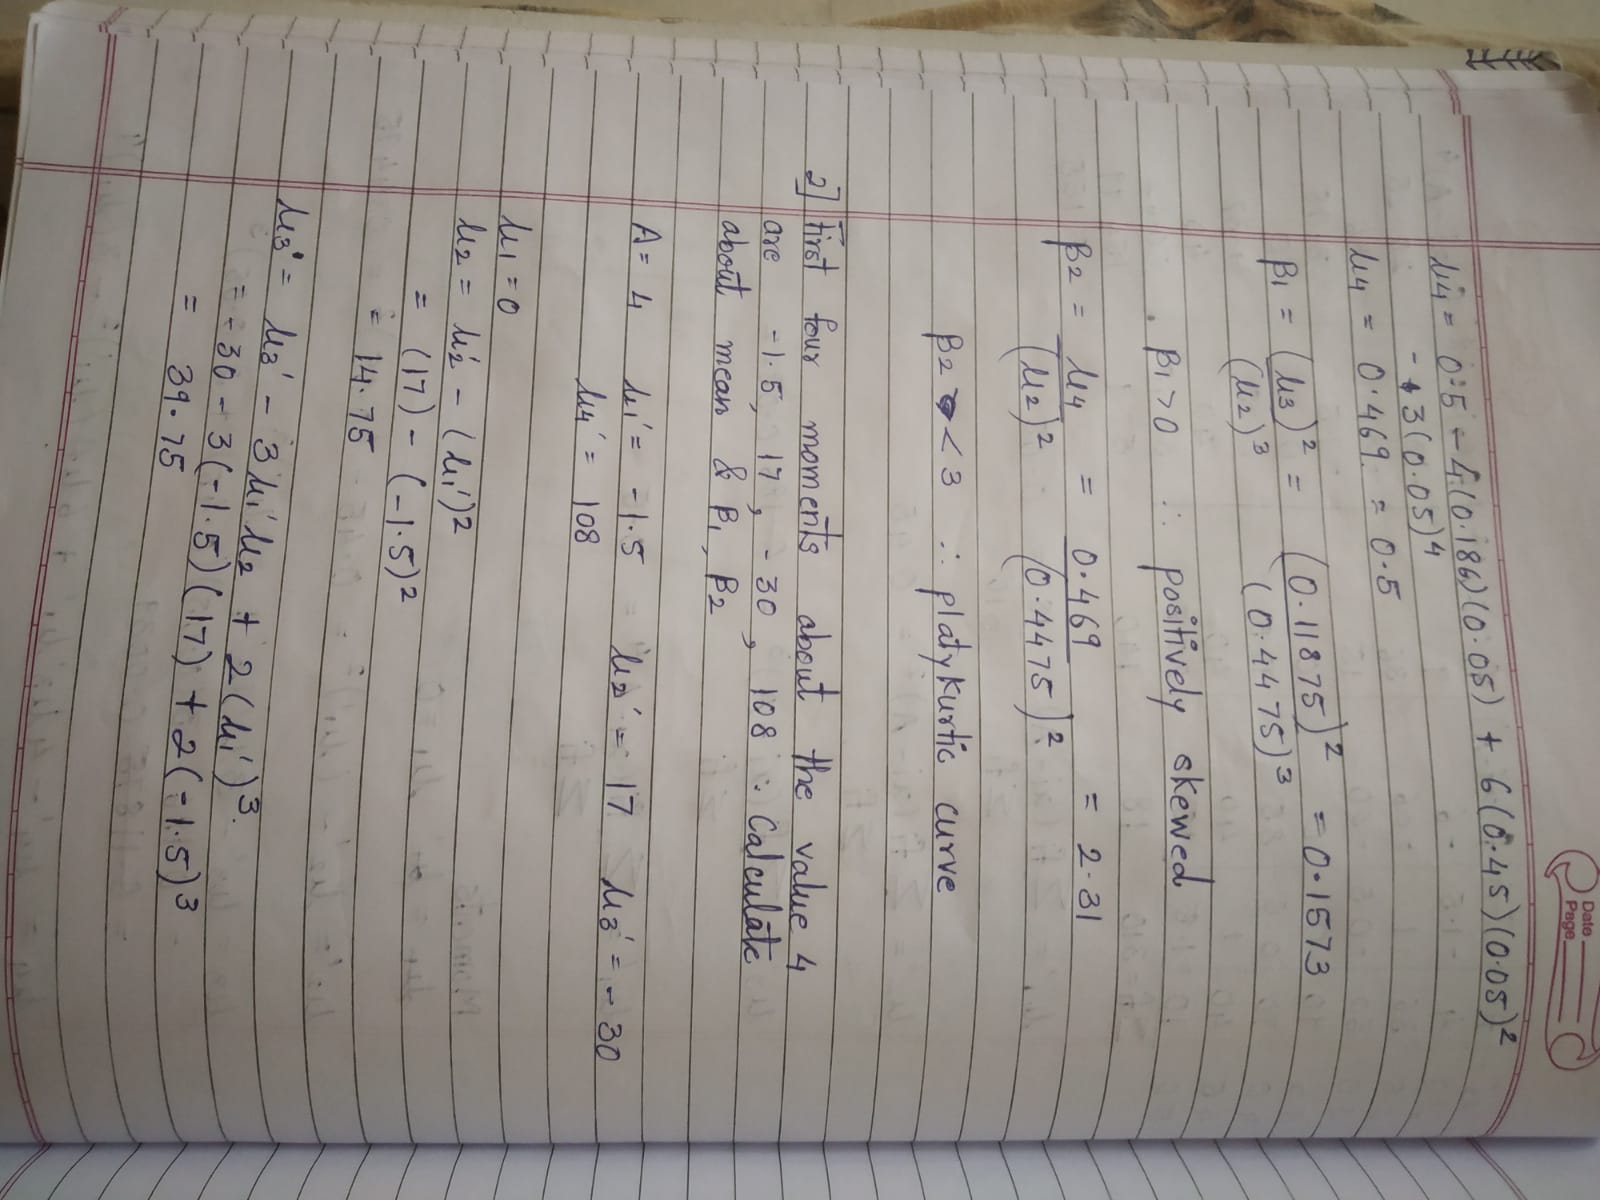 Date
Page
μ4 = 0.5 - 4(0.186)(0.05) + 6(0.45)(0.05)²
- 3(0.05)⁴
μ4 = 0.469 = 0.5
β1 = (μ3)² / (μ2)³ = (0.11875)² / (0.4475)³ = 0.1573
β1 > 0 ∴ positively skewed
β2 = μ4 / (μ2)² = 0.469 / (0.4475)² = 2.31
β2 < 3 ∴ platykurtic curve
2] First four moments about the value 4
are -1.5, 17, -30, 108. Calculate
about mean & β1, β2
A = 4 μ1' = -1.5 μ2' = 17 μ3' = -30
μ4' = 108
μ1 = 0
μ2 = μ2' - (μ1')²
= (17) - (-1.5)²
= 14.75
μ3 = μ3' - 3μ1'μ2 + 2(μ1')³.
= -30 - 3(-1.5)(17) + 2(-1.5)³
= 39.75